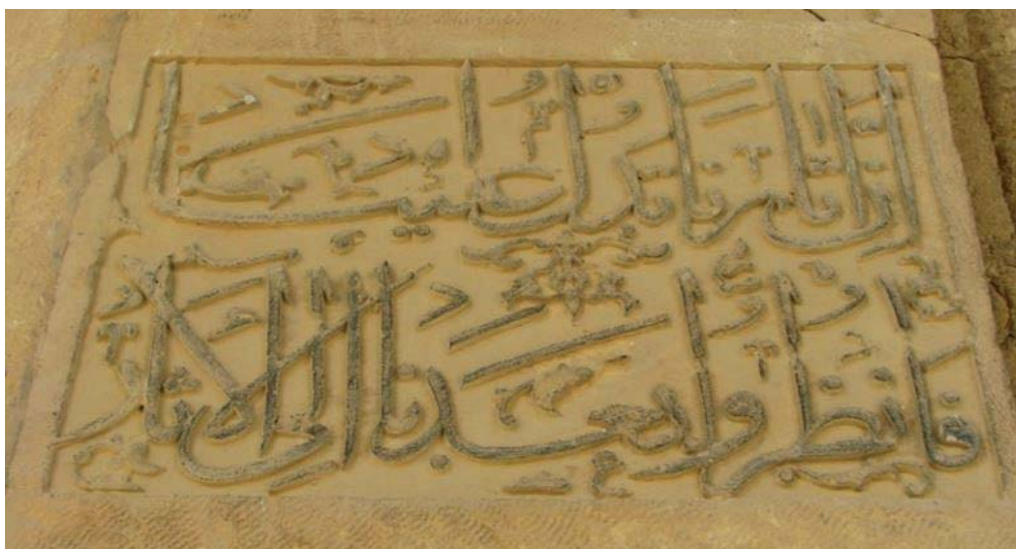 إن آثارنا تدل علينا
فانظروا بعدنا إلى الآثار